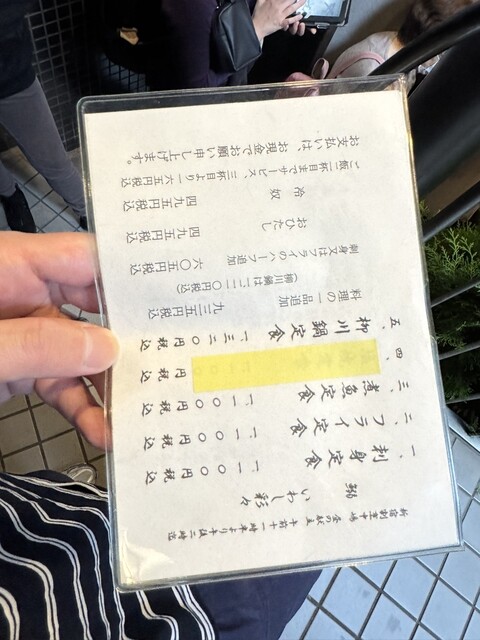 新宿割烹中嶋 昼の献立 午前十一時半より午後二時迄
鰯 いわし彩々
一、刺身定食 一、一〇〇円 税込
二、フライ定食 一、一〇〇円 税込
三、煮魚定食 一、一〇〇円 税込
四、 円 税込
五、柳川鍋定食 一、三二〇円 税込
料理の一品追加 九三五円税込
(柳川鍋は一、二一〇円税込)
刺身又はフライのハーフ追加 六〇五円税込
おひたし 四九五円税込
冷奴 四九五円税込
ご飯二杯目までサービス、三杯目より一六五円税込
お支払いは、お現金でお願い申し上げます。